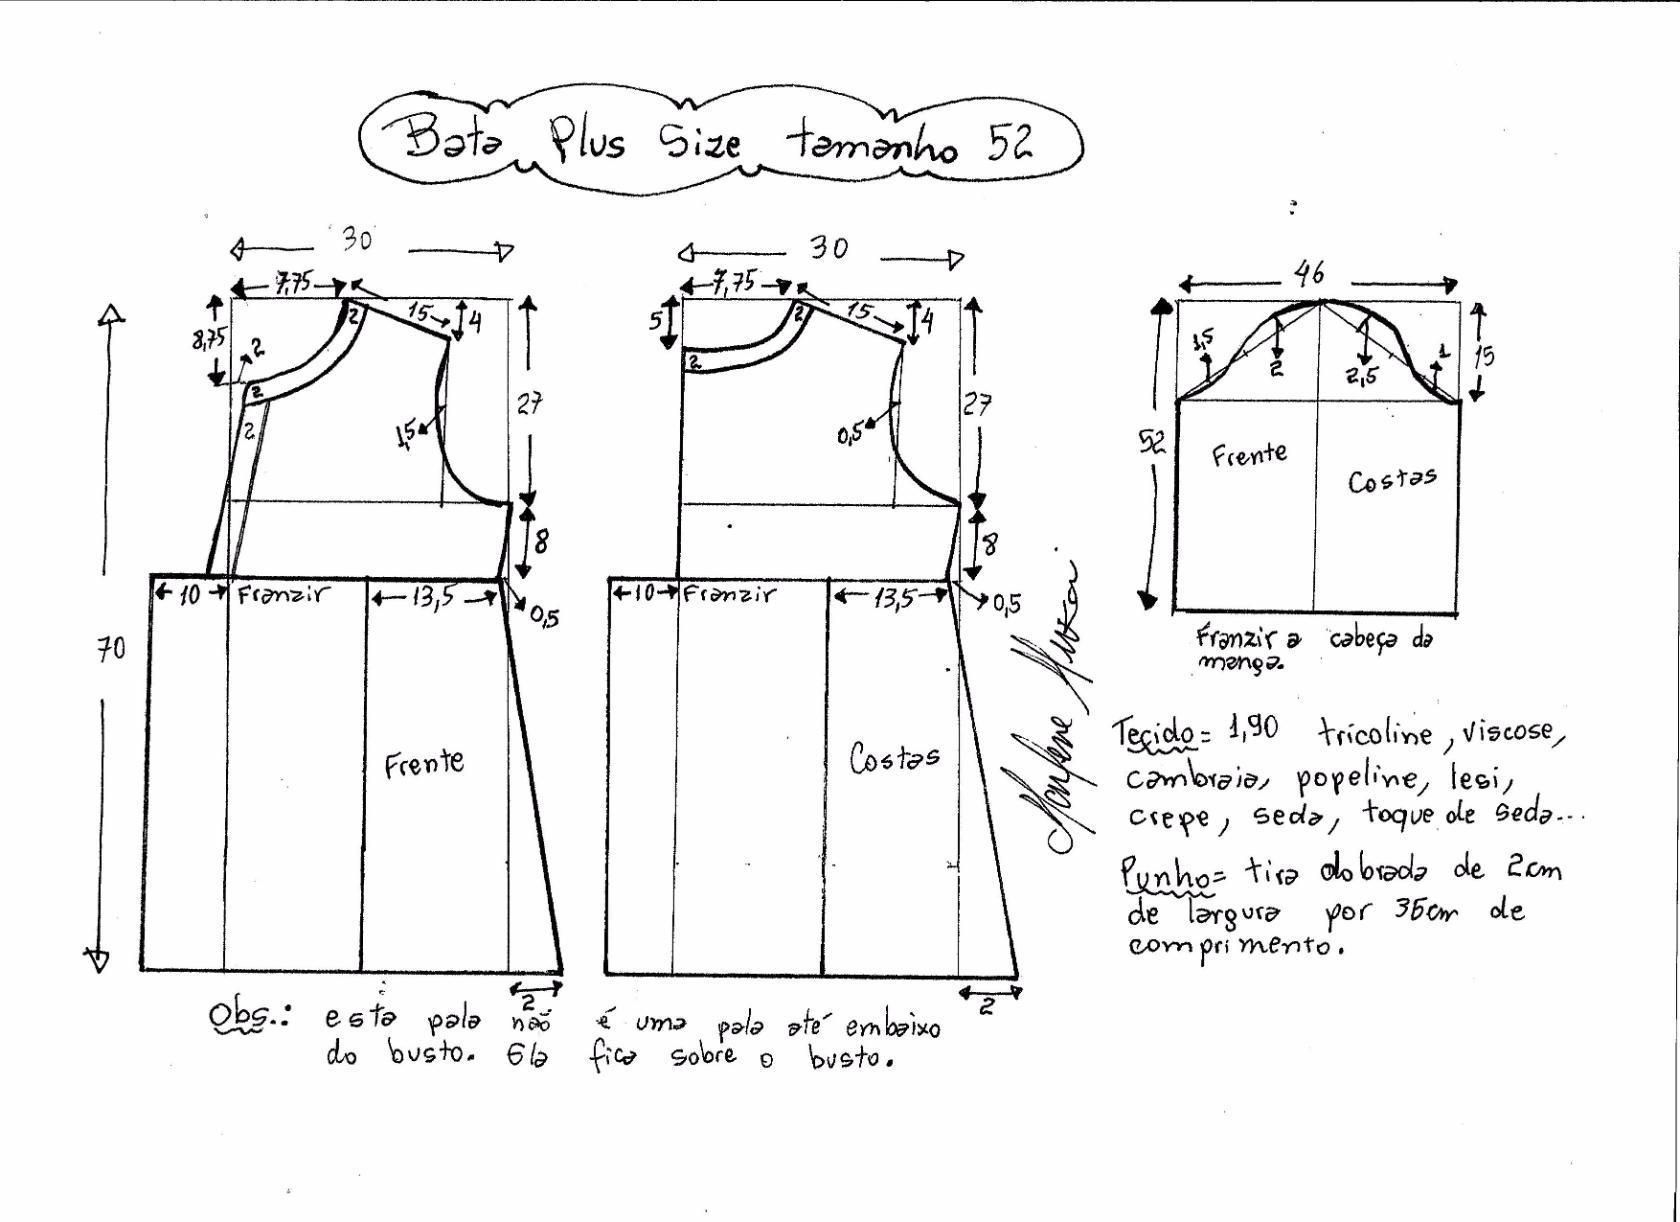 Bata Plus Size tamanho 52
30
7,75
15
4
8,75
2
2
2
2
1,5
27
8
10
Franzir
13,5
0,5
70
Frente
2
30
7,75
15
4
5
2
2
0,5
27
8
10
Franzir
13,5
0,5
Costas
2
46
52
15
1,5
2
2,5
1
Frente
Costas
Franzir a cabeça da
manga.
Tecido= 1,90 tricoline, viscose,
cambraia, popeline, lesi,
crepe, seda, toque de seda...
Punho= tira dobrada de 2cm
de largura por 35cm de
comprimento.
Obs.: esta pala não é uma pala até embaixo
do busto. Ela fica sobre o busto.